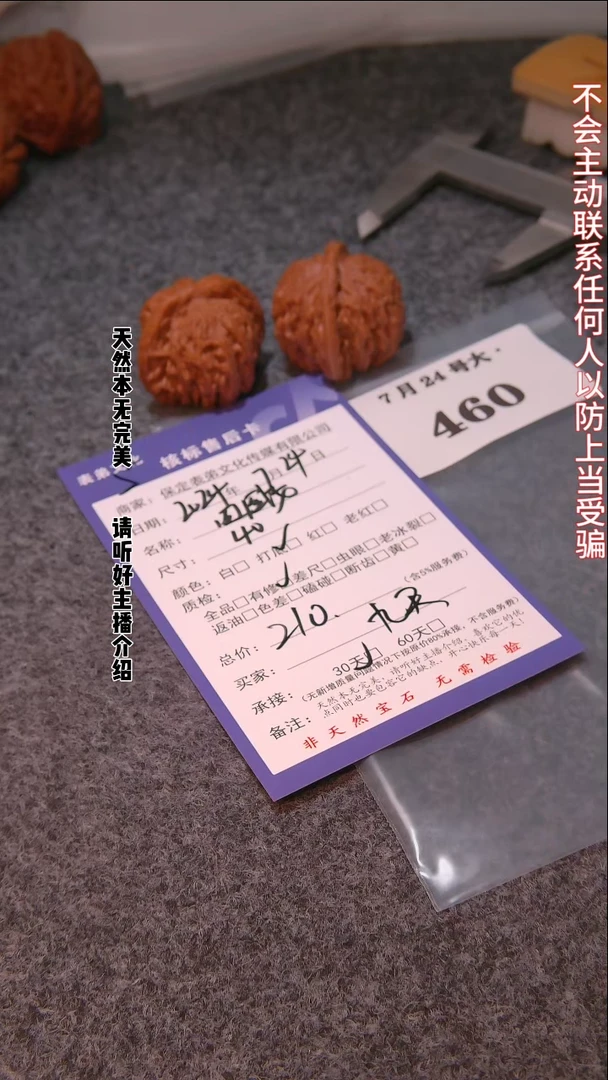 不会主动联系任何人以防上当受骗
天然本无完美
请听好主播介绍
7月24号大·
460
核标售后卡
商家：保定表弟文化传媒有限公司
日期：2024年7月24日
名称：
尺寸：40
颜色：白□ 打底□ 红□ 老红□
质检：全品□有修□差尺□虫眼□老冰裂□
返油□色差□磕碰□断齿□黄□
总价：210. (含5%服务费)
买家：
承接：30天□ 60天□
(无新增质量问题情况下按原价80%承接，不含服务费)
备注：天然本无完美，请听好主播介绍，喜欢它的优
点同时也要包容它的缺点，开心快乐每一天！
非天然宝石 无需检验